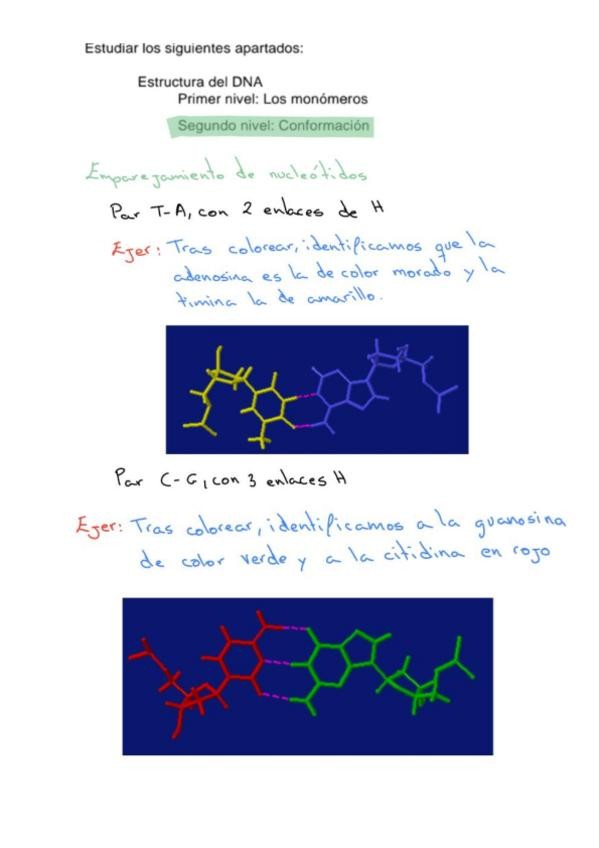 Estudiar los siguientes apartados:
Estructura del DNA
Primer nivel: Los monómeros
Segundo nivel: Conformación
Emparejamiento de nucleótidos
Par T-A, con 2 enlaces de H
Ejer: Tras colorear, identificamos que la
adenosina es la de color morado y la
timina la de amarillo.
Par C-G, con 3 enlaces H
Ejer: Tras colorear, identificamos a la guanosina
de color verde y a la citidina en rojo